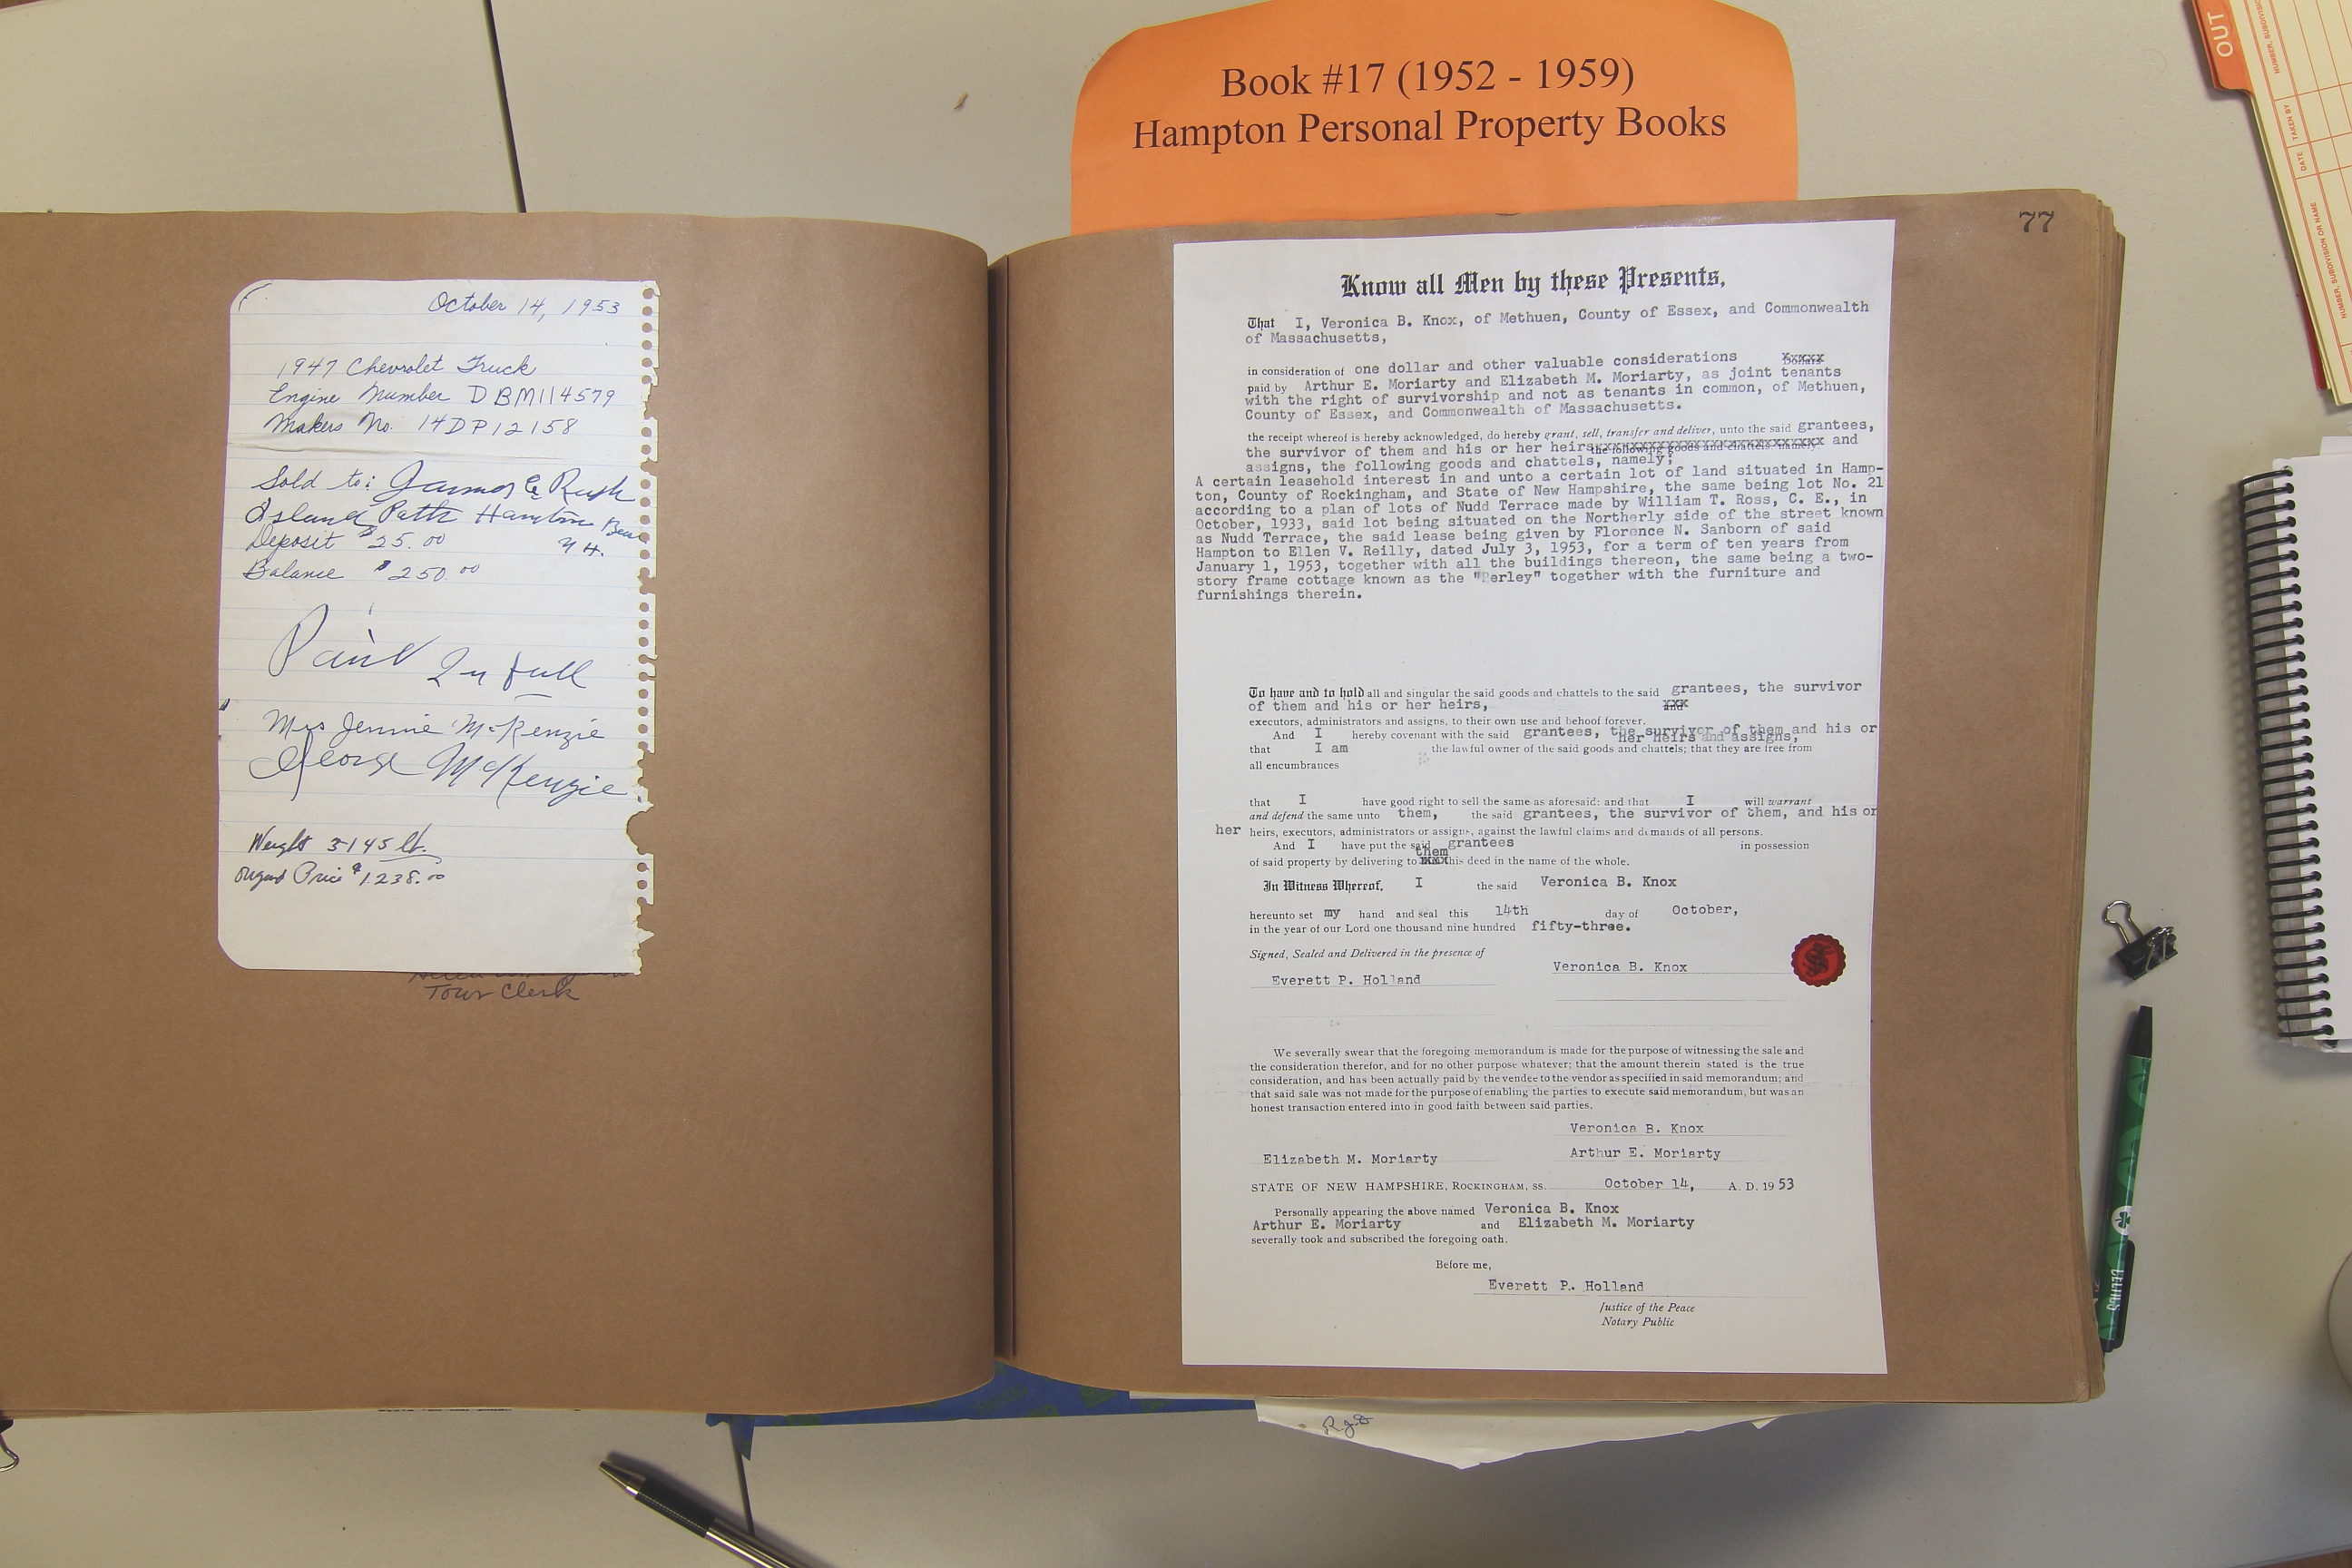 Book #17 (1952 - 1959)
Hampton Personal Property Books
OUT
NUMBER, SUBDIVISION OR NAME
TAKEN BY
DATE
October 14, 1953
1947 Chevrolet Truck
Engine Number DBM114579
Makers No. 14DP12158
Sold to: James E Rush
Island Path Hampton Bea
N H.
Deposit $25.00
Balance $250.00
Paid In full
Mrs Jennie McKenzie
George McKenzie
Weight 3145 lb.
Price $1238.00
Town Clerk
77
Know all Men by these Presents,
That I, Veronica B. Knox, of Methuen, County of Essex, and Commonwealth
of Massachusetts,
in consideration of one dollar and other valuable considerations Dollars
paid by Arthur E. Moriarty and Elizabeth M. Moriarty, as joint tenants
with the right of survivorship and not as tenants in common, of Methuen,
County of Essex, and Commonwealth of Massachusetts.
the receipt whereof is hereby acknowledged, do hereby grant, sell, transfer and deliver, unto the said grantees,
the survivor of them and his or her heirs the following goods and chattels, namely: and
assigns, the following goods and chattels, namely;
A certain leasehold interest in and unto a certain lot of land situated in Hamp-
ton, County of Rockingham, and State of New Hampshire, the same being lot No. 21
according to a plan of lots of Nudd Terrace made by William T. Ross, C. E., in
October, 1933, said lot being situated on the Northerly side of the street known
as Nudd Terrace, the said lease being given by Florence N. Sanborn of said
Hampton to Ellen V. Reilly, dated July 3, 1953, for a term of ten years from
January 1, 1953, together with all the buildings thereon, the same being a two-
story frame cottage known as the "Perley" together with the furniture and
furnishings therein.
To have and to hold all and singular the said goods and chattels to the said grantees, the survivor
of them and his or her heirs, and
executors, administrators and assigns, to their own use and behoof forever.
And I hereby covenant with the said grantees, the survivor of them and his or
her heirs and assigns,
that I am the lawful owner of the said goods and chattels; that they are free from
all encumbrances
that I have good right to sell the same as aforesaid: and that I will warrant
and defend the same unto them, the said grantees, the survivor of them, and his or
her heirs, executors, administrators or assigns, against the lawful claims and demands of all persons.
And I have put the said grantees in possession
them
of said property by delivering to this deed in the name of the whole.
In Witness Whereof, I the said Veronica B. Knox
hereunto set my hand and seal this 14th day of October,
in the year of our Lord one thousand nine hundred fifty-three.
Signed, Sealed and Delivered in the presence of
Veronica B. Knox
Everett P. Holland
We severally swear that the foregoing memorandum is made for the purpose of witnessing the sale and
the consideration therefor, and for no other purpose whatever; that the amount therein stated is the true
consideration, and has been actually paid by the vendee to the vendor as specified in said memorandum; and
that said sale was not made for the purpose of enabling the parties to execute said memorandum, but was an
honest transaction entered into in good faith between said parties.
Veronica B. Knox
Elizabeth M. Moriarty Arthur E. Moriarty
STATE OF NEW HAMPSHIRE, ROCKINGHAM, SS. October 14, A. D. 1953
Personally appearing the above named Veronica B. Knox
Arthur E. Moriarty and Elizabeth M. Moriarty
severally took and subscribed the foregoing oath.
Before me,
Everett P. Holland
Justice of the Peace
Notary Public